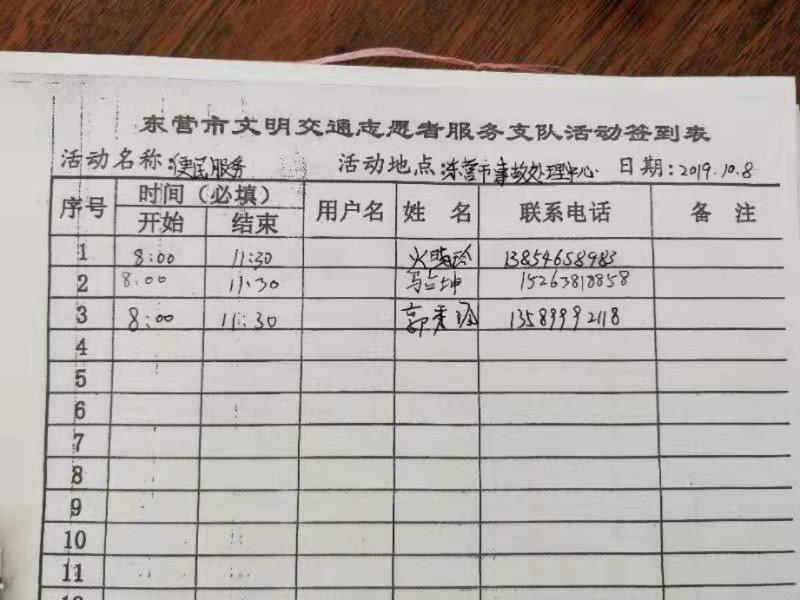 东营市文明交通志愿者服务支队活动签到表
活动名称:便民服务 活动地点:东营市事故处理中心 日期:2019.10.8
序号 时间(必填) 用户名 姓 名 联系电话 备 注
开始 结束
1 8:00 11:30 13854658983
2 8:00 11:30 马占坤 15263818858
3 8:00 11:30 郭秀 13589992118
4
5
6
7
8
9
10
11